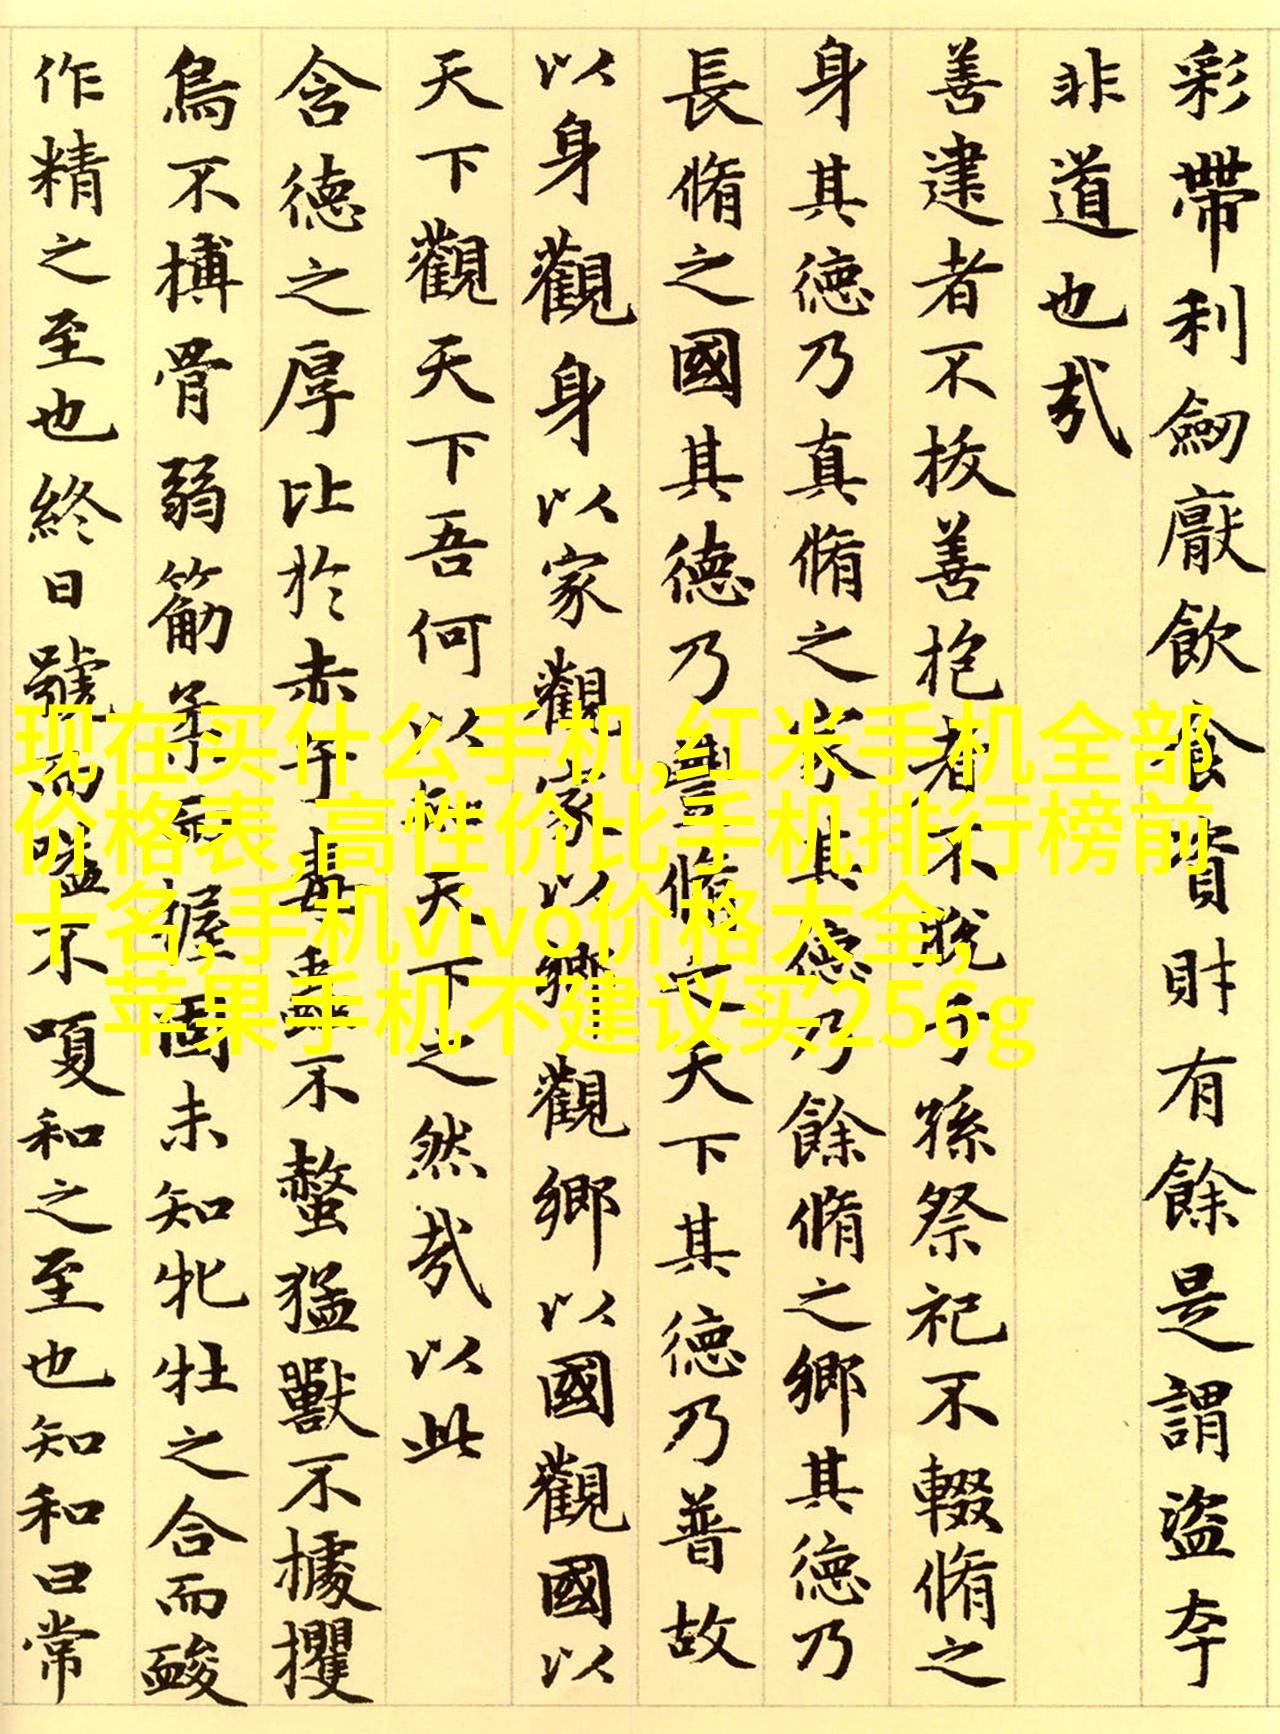 彩帶利劒厭飲食資財有餘是謂盜夸
非道也哉
善建者不拔善抱者不脫子孫祭祀不輟脩之
身其德乃真脩之家其德乃餘脩之鄉其德乃
長脩之國其德乃豐脩之天下其德乃普故
以身觀身以家觀家以鄉觀鄉以國觀國以
天下觀天下吾何以知天下之然哉以此
含德之厚比於赤子毒蟲不螫猛獸不據攫
鳥不搏骨弱筋柔而握固未知牝牡之合而酸
作精之至也終日號而嗌不嗄和之至也知和曰常
现在买什么手机,红米手机全部
价格表,高性价比手机排行榜前
十名,手机vivo价格大全,
苹果手机不建议买256g